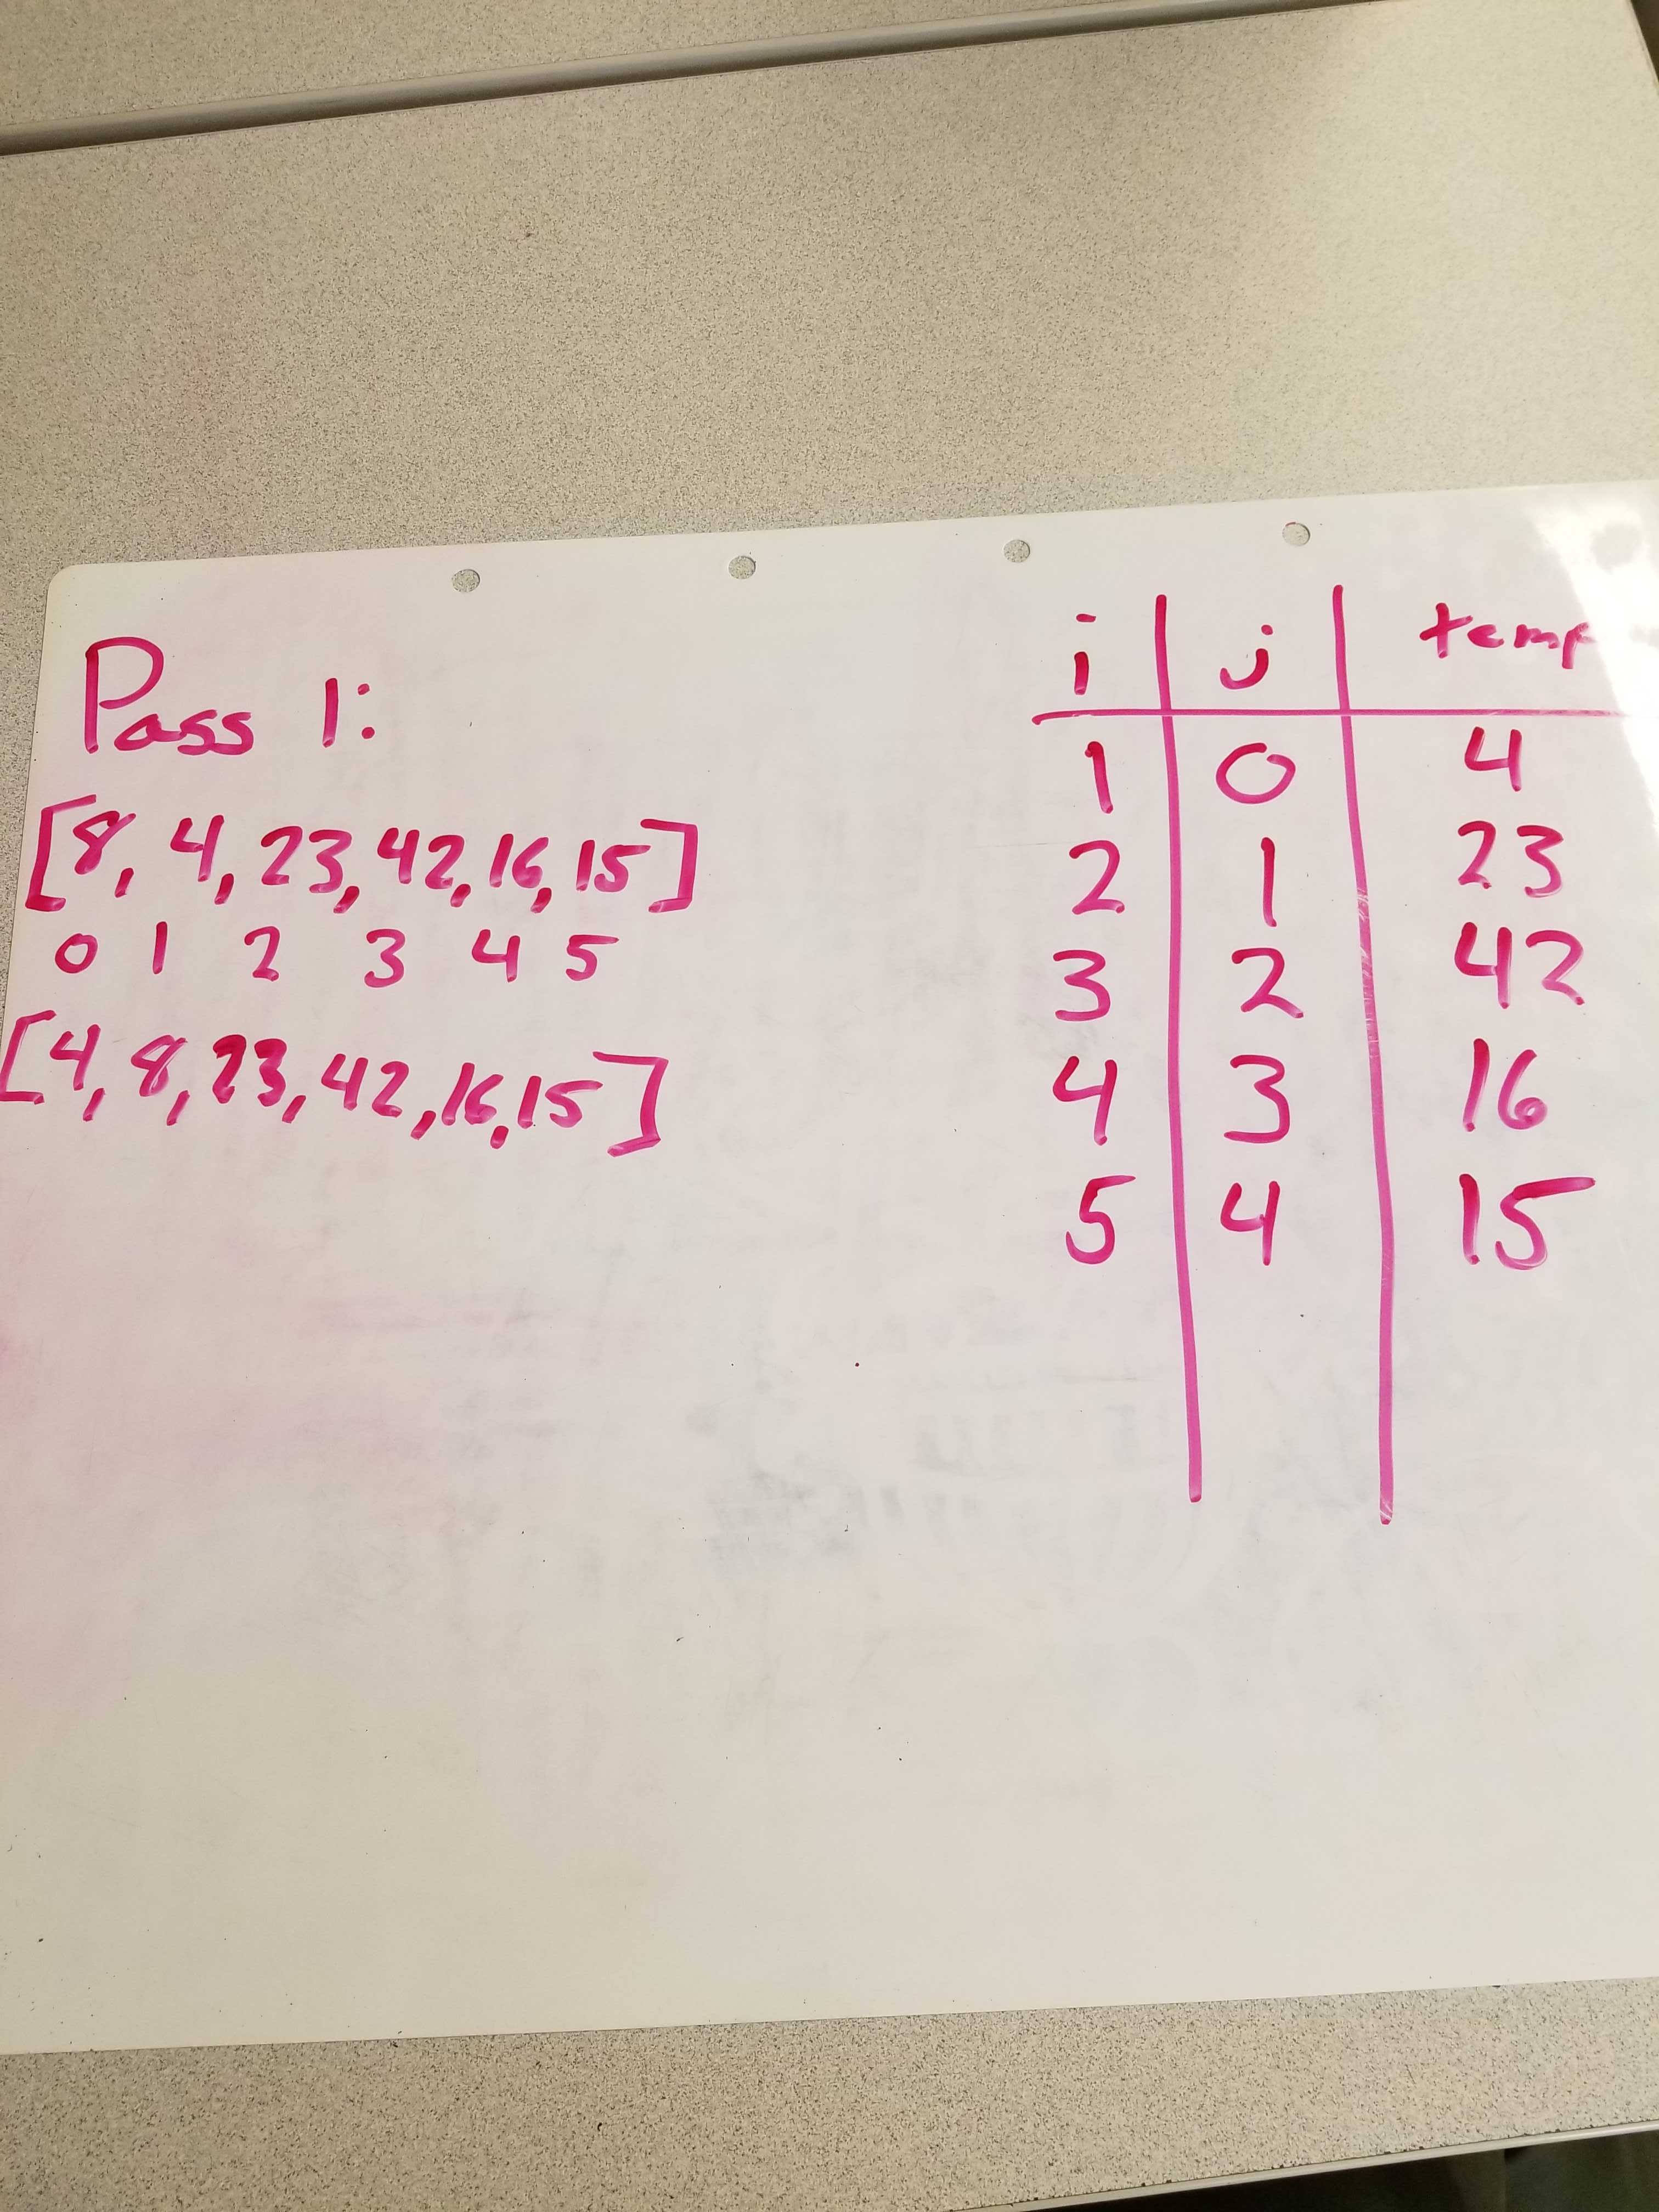 Pass 1:
[8, 4, 23, 42, 16, 15]
0 1 2 3 4 5
[4, 8, 23, 42, 16, 15]
i j temp
1 0 4
2 1 23
3 2 42
4 3 16
5 4 15